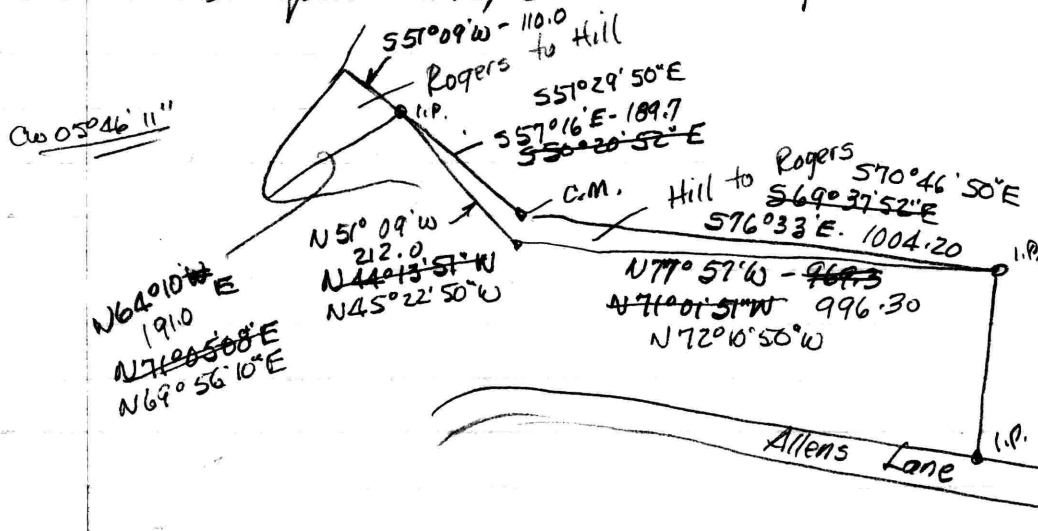 S51°09'W - 110.0
Rogers to Hill
I.P.
CW 05°46'11"
S51°29'50"E
S57°16'E - 189.7
S50°20'52"E
C.M.
Hill to Rogers
S70°46'50"E
S69°37'52"E
S76°33'E. 1004.20
I.P.
N51°09'W
212.0
N44°13'51"W
N45°22'50"W
N77°57'W - 969.3
N71°01'51"W 996.30
N72°10'50"W
N64°10'W E
191.0
N71°05'08"E
N69°56'10"E
Allens Lane
I.P.